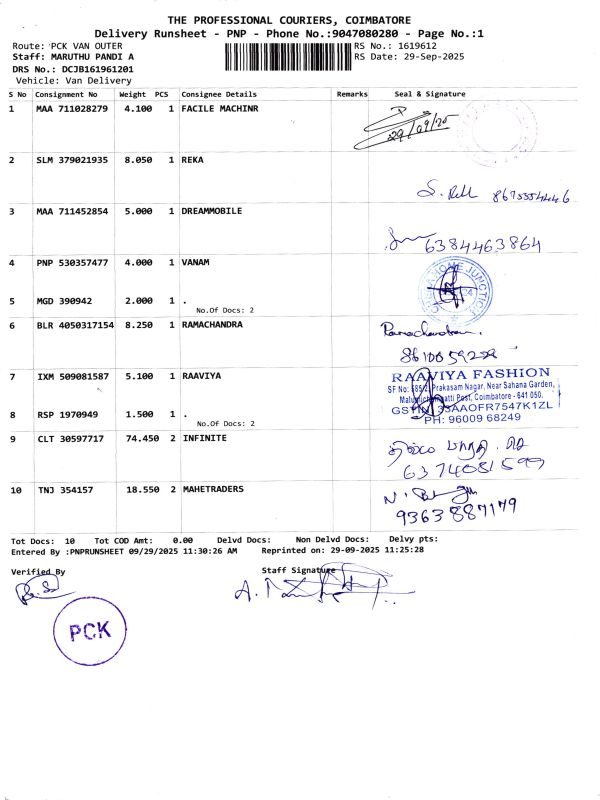 THE PROFESSIONAL COURIERS, COIMBATORE
Delivery Runsheet - PNP - Phone No.:9047080280 - Page No.:1
Route: PCK VAN OUTER RS No.: 1619612
Staff: MARUTHU PANDI A RS Date: 29-Sep-2025
DRS No.: DCJB161961201
Vehicle: Van Delivery
S No Consignment No Weight PCS Consignee Details Remarks Seal & Signature
1 MAA 711028279 4.100 1 FACILE MACHINR
29/09/25
2 SLM 379021935 8.050 1 REKA
3 MAA 711452854 5.000 1 DREAMMOBILE
6384463864
4 PNP 530357477 4.000 1 VANAM
HOME JUNCTION
5 MGD 390942 2.000 1 .
No.Of Docs: 2
6 BLR 4050317154 8.250 1 RAMACHANDRA
Ramachandran.
7 IXM 509081587 5.100 1 RAAVIYA
RAAVIYA FASHION
Prakasam Nagar, Near Sahana Garden,
Post, Coimbatore - 641 050.
33AAOFR7547K1ZL
PH: 96009 68249
8 RSP 1970949 1.500 1 .
No.Of Docs: 2
9 CLT 30597717 74.450 2 INFINITE
6374081599
10 TNJ 354157 18.550 2 MAHETRADERS
9363887179
Tot Docs: 10 Tot COD Amt: 0.00 Delvd Docs: Non Delvd Docs: Delvy pts:
Entered By :PNPRUNSHEET 09/29/2025 11:30:26 AM Reprinted on: 29-09-2025 11:25:28
Verified By Staff Signature
PCK